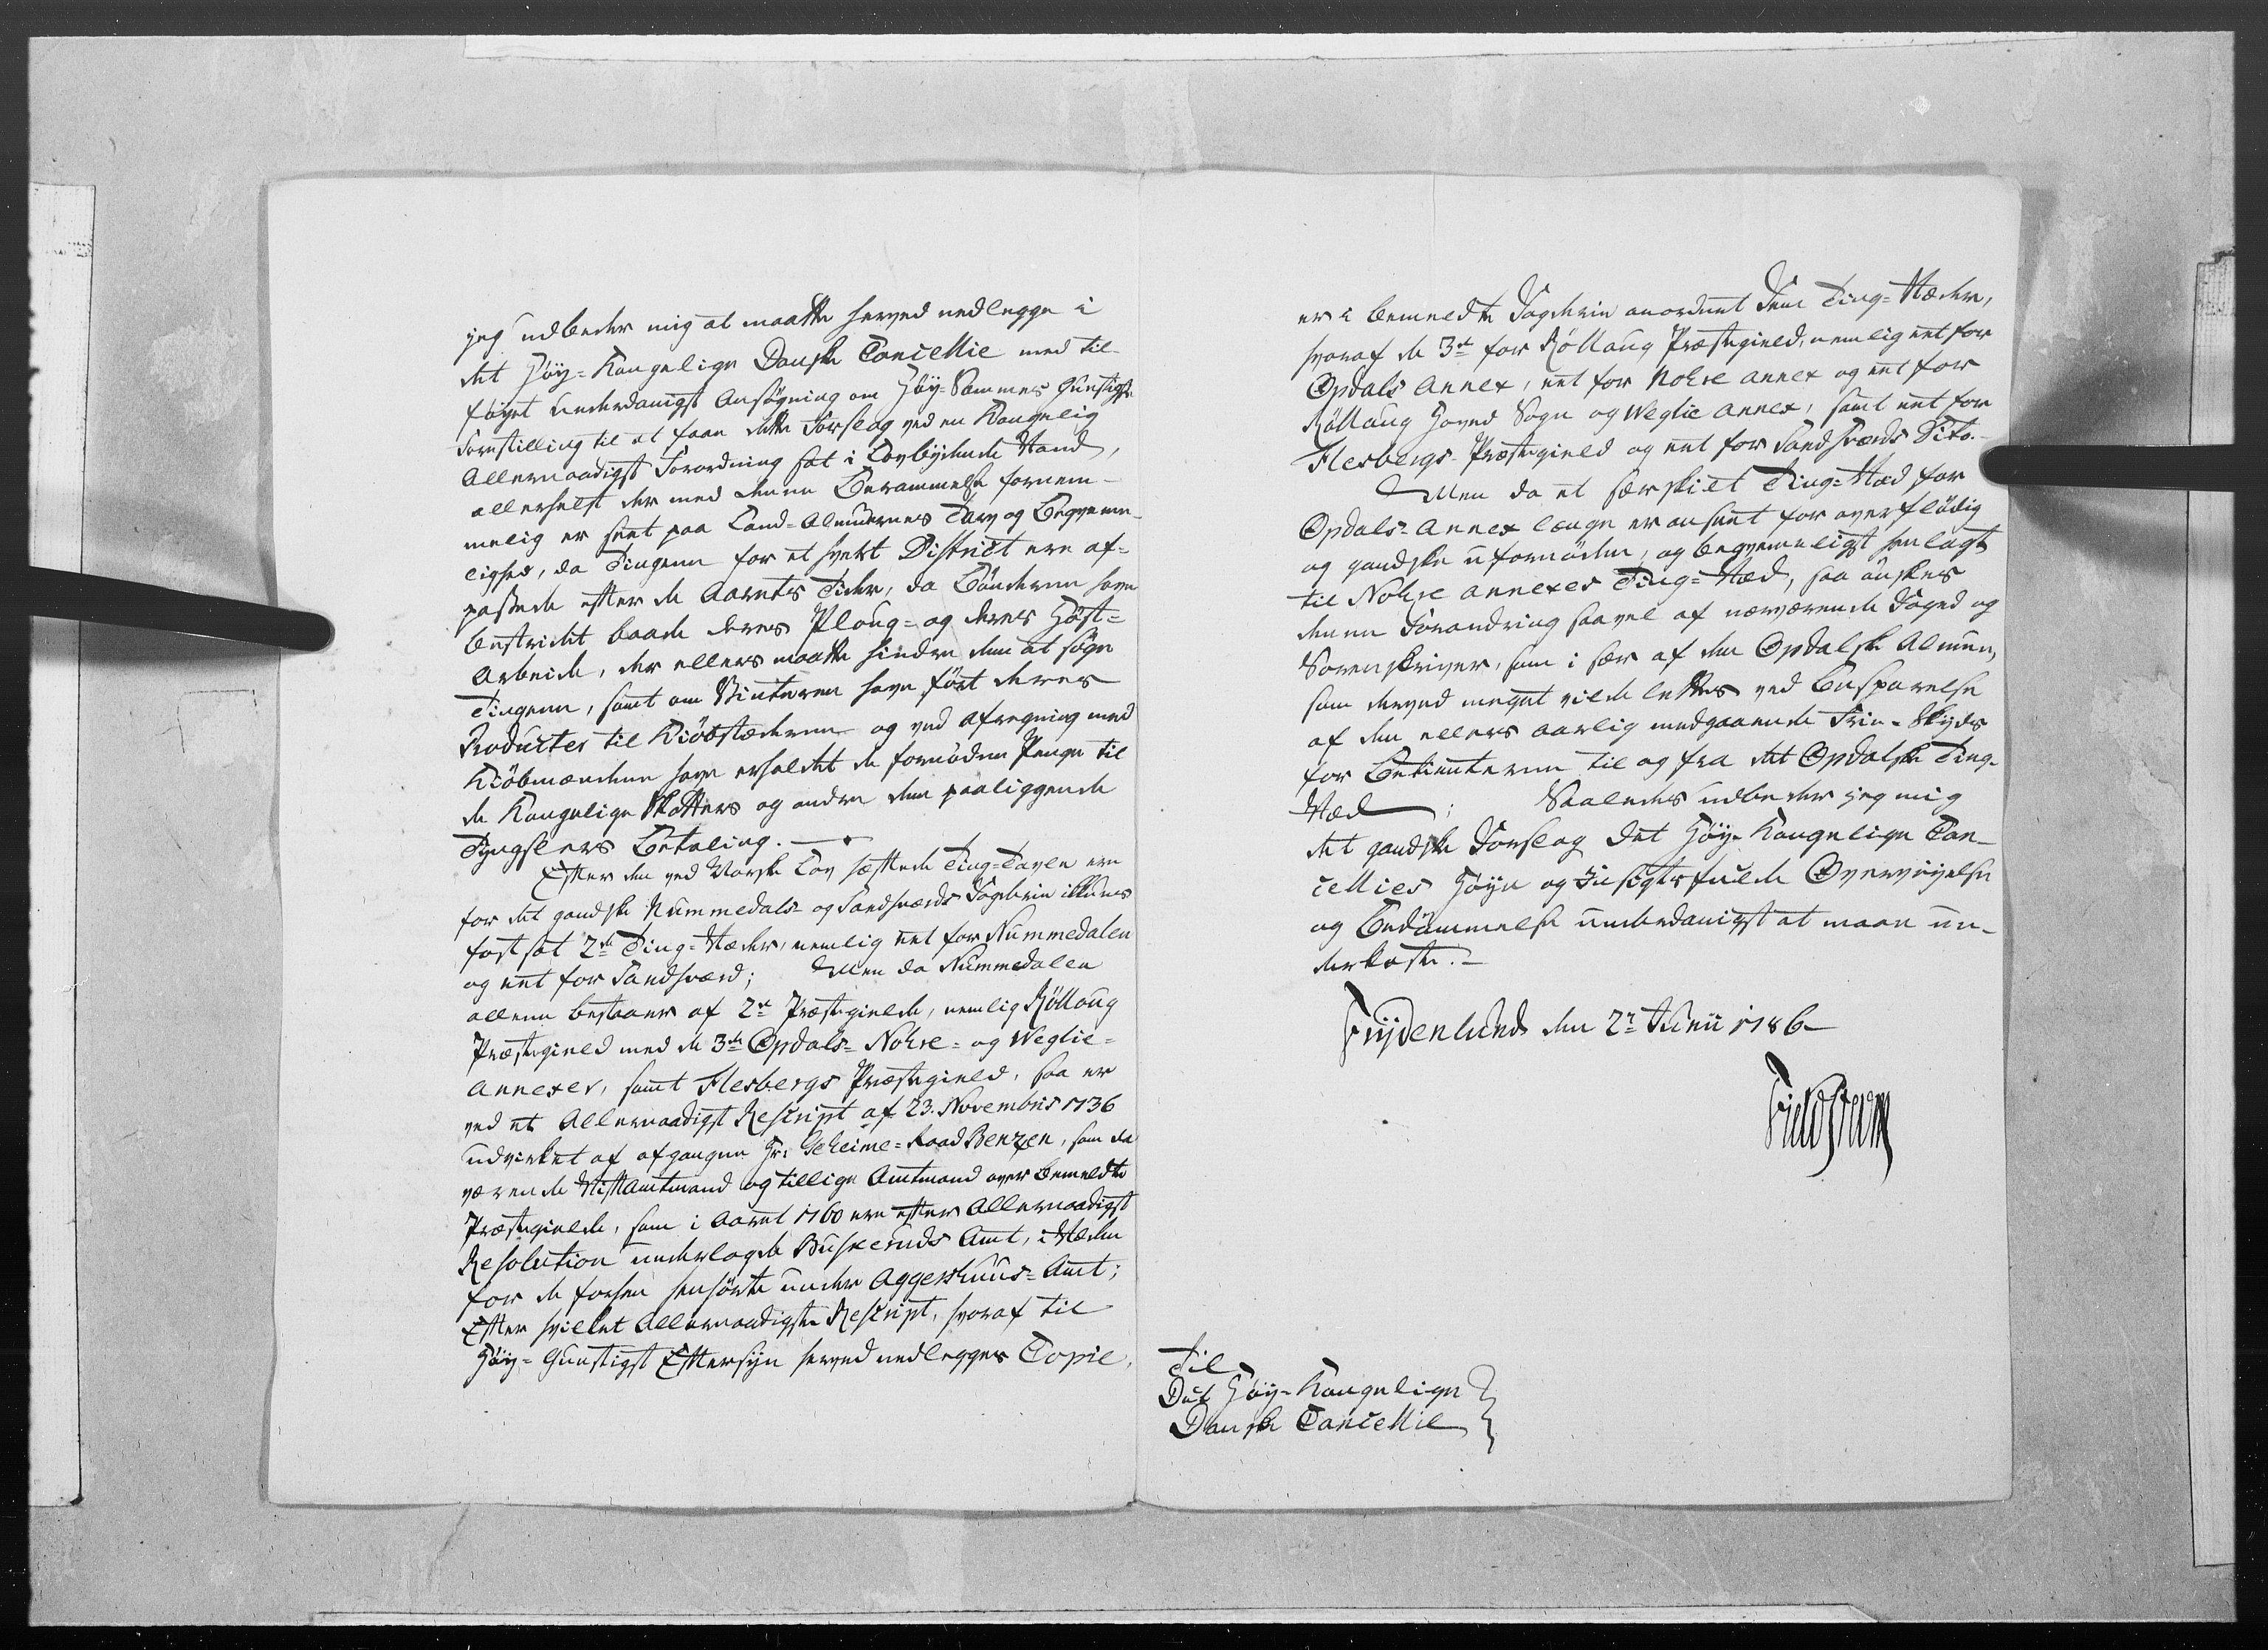 jeg udbeder mig at maatte herved nedlegge i
det Høy-Kongelige Danske Cancellie med til-
føyet underdanigst Ansøgning om Høy-Sammes Gunstigste
Forestilling til at faae dette Forslag ved en Kongelig
Allernaadigst Forordning sat i Lovbydende Stand,
allerhelst der med denne Berammelse fornem-
melig er seet paa Land-Almuernes Tarv og Beqvem-
lighed, da Tingene for et hvert District ere af-
passede efter de Aarets Tider, da Bønderne have
bestridt baade deres Ploug- og deres Høst-
Arbeide, der ellers maatte hindre dem at søge
Tingene, samt om Vinteren have ført deres
Producter til Kiøbstæderne og ved Afregning med
Kiøbmændene have erholdet de fornødne Penge til
de Kongelige Skatters og andre dem paaliggende
Tyngslers Betaling. —
Efter den ved Norske Lov hæftede Ting-Tavle ere
for det gandske Nummedals- og Sandsværds Fogderie ikkuns
fastsat 2de Ting-Stæder, nemlig eet for Nummedalen
og eet for Sandsværd; Men da Nummedalen
allene bestaaer af 2de Præstegielde, nemlig Rollaug
Præstegield med de 3de Opdals- Nohre- og Weglie-
Annexer, samt Flesbergs Præstegield, saa er
ved et Allernaadigst Rescript af 23. Novembris 1736
udvirket af afgangne Hr: Geheime-Raad Benzen, som da
værende Stiftamtmand og tillige Amtmand over bemeldte
Præstegielde, som i Aaret 1760 ere efter Allernaadigst
Resolution underlagde Buskeruds Amt, i Stæden
for de forhen henhørte under Aggershuus-Amt;
Efter hvilket Allernaadigste Rescript, hvoraf til
Høy-Gunstigst Eftersyn herved nedlegges Copie,
er i bemeldte Fogderie anordnet Fem Ting-Stæder,
hvoraf de 3de for Rollaug Præstegield, nemlig eet for
Opdals Annex, eet for Nohre Annex og eet for
Rollaug Hoved Sogn og Weglie Annex, samt eet for
Flesbergs-Præstegield og eet for Sandsværds Dito.-
Men da et særskilt Ting-Stæd for
Opdals-Annex længe er anseet for overflødig
og gandske ufornøden, og beqvemmeligst henlagt
til Nohre Annexes Ting-Stæd, saa ønskes
denne Forandring saavel af nærværende Foged og
Sorenskriver, som i sær af den Opdalske Almue,
som derved meget vilde lettes ved Besparelse
af den ellers aarlig medgaaende Frie-Skyds
for Betienterne til og fra det Opdalske Ting-
Stæd; Saaledes udbeder jeg mig
det gandske Forslag Det Høy-Kongelige Can-
cellies Høye og Indsigtsfulde Overveyelse
og Bedømmelse underdanigst at maae un-
derkaste. —
Frydenlund den 2de Junii 1786
Fieldsted
Til
Det Høy-Kongelige
Danske Cancellie